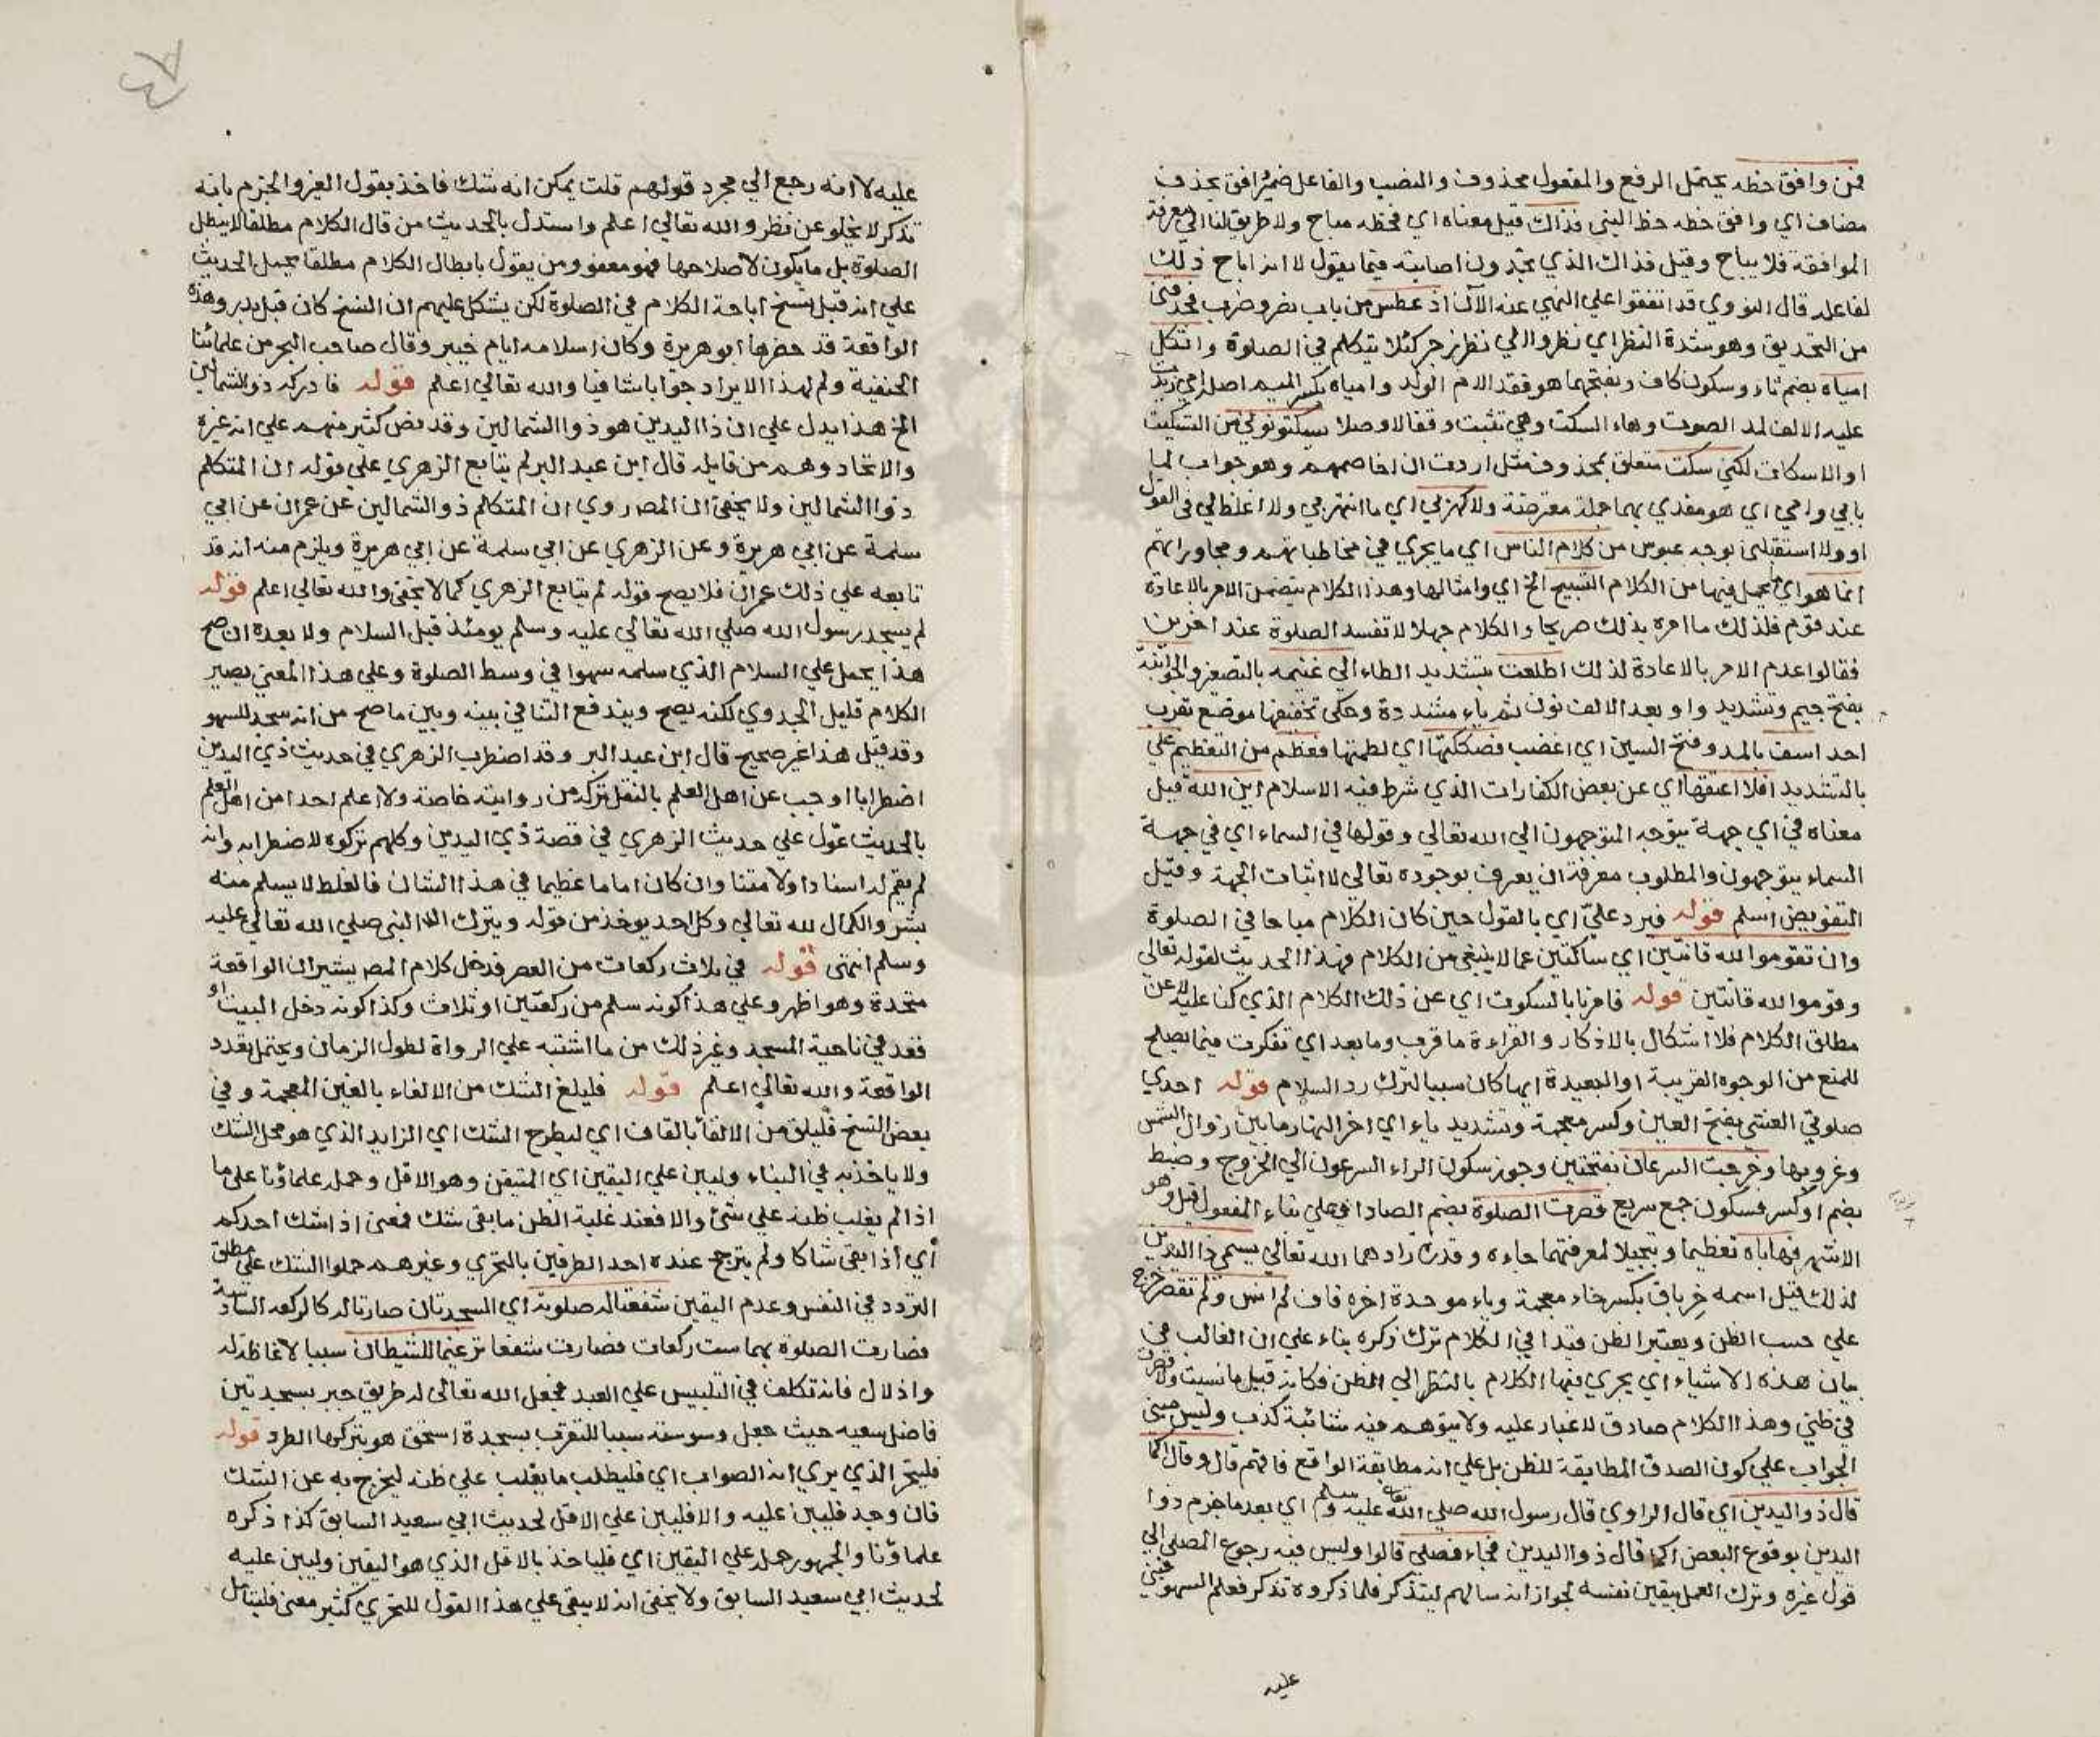 فمن وافق خطه يحتمل الرفع والمفعول محذوف والنصب والفاعل ضمير وافق بحذف
مضاف اي وافق خطه خط النبي فذاك قيل معناه اي فخطه مباح ولا طريق لنا الي معرفة
الموافقة فلا يباح وقيل فذاك الذي تجدون اصابته فيما يقول لا انه اباح ذلك
لفاعله قال النووي قد اتفقوا علي النهي عنه الآن اذ عطس من باب نصر وضرب فحدقني
من التحديق وهو شدة النظر اي نظروا الي نظر زجر كيلا يتكلم في الصلوة واثكل
امياه بضم ثاء وسكون كاف وبفتحهما هو فقد الام الولد وامياه بكسر الميم اصله امي زيدت
عليه الالف لمد الصوت وهاء السكت وهي تثبت وقفا لا وصلا يسكتونني من التسكيت
او الاسكات لكني سكت متعلق بمحذوف مثل اردت ان اخاصمهم وهو جواب لما
بابي وامي اي هو مفدي بهما جملة معترضة ولا كهرني اي ما انتهرني ولا اغلظ لي في القول
او ولا استقبلني بوجه عبوس من كلام الناس اي ما يجري في مخاطباتهم ومحاوراتهم
انما هو اي ما يحل فيها من الكلام التسبيح الخ اي وامثالها وهذا الكلام يتضمن الامر بالاعادة
عند قوم فلذلك ما امره بذلك صريحا والكلام جهلا لا تفسد الصلوة عند اخرين
فقالوا عدم الامر بالاعادة لذلك اطلعت بتشديد الطاء الي غنيمه بالتصغير والجوانية
بفتح جيم وتشديد واو وبعد الالف نون ثم ياء مشددة وحكي تخفيفها موضع بقرب
احد اسف بالمد وفتح السين اي اغضب فصككتها اي لطمتها فعظم من التعظيم علي
بالتشديد افلا اعتقها اي عن بعض الكفارات الذي شرط فيه الاسلام اين الله قيل
معناه في اي جهة يتوجه المتوجهون الي الله تعالي وقولها في السماء اي في جهة
السماء يتوجهون والمطلوب معرفة ان يعرف بوجوده تعالي لا اثبات الجهة وقيل
التفويض اسلم قوله فيرد عليّ اي بالقول حين كان الكلام مباحا في الصلوة
وان تقوموا لله قانتين اي ساكتين عما لا ينبغي من الكلام فهذا الحديث لقوله تعالي
وقوموا لله قانتين قوله فامرنا بالسكوت اي عن ذلك الكلام الذي كنا عليه لا عن
مطلق الكلام فلا اشكال بالاذكار والقراءة ما قرب وما بعد اي تفكرت فيما يصلح
للمنع من الوجوه القريبة او البعيدة ايها كان سببا لترك رد السلام قوله احدي
صلوتي العشي بفتح العين وكسر معجمة وتشديد ياء اي اخر النهار ما بين زوال الشمس
وغروبها وخرجت السرعان بفتحتين وجوز سكون الراء المسرعون الي الخروج وضبط
بضم او كسر فسكون جمع سريع قصرت الصلوة بضم الصاد او علي بناء المفعول قيل وهو
الاشهر فهاباه تعظيما وتبجيلا لمعرفتهما جاهه وقدره زادهما الله تعالي يسمي ذا اليدين
لذلك قيل اسمه خرباق بكسر خاء معجمة وباء موحدة اخره قاف لم انس ولم تقصر خرج
علي حسب الظن ويعتبر الظن قيدا في الكلام ترك ذكره بناء علي ان الغالب في
بيان هذه الاشياء اي يجري فيها الكلام بالنظر الي الظن فكانه قيل ما نسيت ولا قصرت
في ظني وهذا الكلام صادق لا غبار عليه ولا يتوهم فيه شائبة كذب وليس مبني
الجواب علي كون الصدق المطابقة للظن بل علي انه مطابقة الواقع فافهم قال وقال اكما
قال ذو اليدين اي قال الراوي قال رسول الله صلي الله تعالي عليه وسلم اي بعد ما جزم ذوا
اليدين بوقوع البعض اكما قال ذوا اليدين فجاء فصلي قالوا وليس فيه رجوع المصلي الي
قول غيره وترك العمل بيقين نفسه لجواز انه سالهم ليتذكر فلما ذكروه تذكر فعلم السهو فبني
عليه
عليه لا انه رجع الي مجرد قولهم قلت يمكن انه شك فاخذ بقول الغير والجزم بانه
تذكر لا يخلو عن نظر والله تعالي اعلم واستدل بالحديث من قال الكلام مطلقا لا يبطل
الصلوة بل ما يكون لاصلاحها فهو معفو ومن يقول بابطال الكلام مطلقا يحمل الحديث
علي انه قبل نسخ اباحة الكلام في الصلوة لكن يشكل عليهم ان النسخ كان قبل بدر وهذه
الواقعة قد حضرها ابو هريرة وكان اسلامه ايام خيبر وقال صاحب البحر من علمائنا
الحنفية ولم ار لهذا الايراد جوابا شافيا والله تعالي اعلم قوله فادركه ذو الشمالين
الخ هذا يدل علي ان ذا اليدين هو ذوا الشمالين وقد نص كثير منهم علي انه غيره
والاتحاد وهم من قايله قال ابن عبد البر لم يتابع الزهري علي قوله ان المتكلم
ذوا الشمالين ولا يخفي ان المص روي ان المتكلم ذو الشمالين عن عمران عن ابي
سلمة عن ابي هريرة وعن الزهري عن ابي سلمة عن ابي هريرة ويلزم منه انه قد
تابعه علي ذلك عمران فلا يصح قوله لم يتابع الزهري كما لا يخفي والله تعالي اعلم قوله
لم يسجد رسول الله صلي الله تعالي عليه وسلم يومئذ قبل السلام ولا بعده ان صح
هذا يحمل علي السلام الذي سلمه سهوا في وسط الصلوة وعلي هذا المعني يصير
الكلام قليل الجدوي لكنه يصح ويندفع التنافي بينه وبين ما صح من انه سجد للسهو
وقد قيل هذا غير صحيح قال ابن عبد البر وقد اضطرب الزهري في حديث ذي اليدين
اضطرابا اوجب عن اهل العلم بالنقل تركه من روايته خاصة ولا اعلم احدا من اهل العلم
بالحديث عوّل علي حديث الزهري في قصة ذي اليدين وكلهم تركوه لاضطرابه وانه
لم يقم له اسنادا ولا متنا وان كان اماما عظيما في هذا الشان فالغلط لا يسلم منه
بشر والكمال لله تعالي وكل احد يوخذ من قوله ويترك الا النبي صلي الله تعالي عليه
وسلم انتهي قوله في ثلاث ركعات من العصر فدخل كلام المص يشير ان الواقعة
متحدة وهو اظهر وعلي هذا كونه سلم من ركعتين او ثلاث وكذا كونه دخل البيت او
قعد في ناحية المسجد وغير ذلك من ما اشتبه علي الرواة لطول الزمان ويحتمل تعدد
الواقعة والله تعالي اعلم قوله فليلغ الشك من الالغاء بالغين المعجمة وفي
بعض النسخ فليلق من الالقا بالقاف اي ليطرح الشك اي الزايد الذي هو محل الشك
ولا ياخذ به في البناء وليبن علي اليقين اي المتيقن وهو الاقل وحمل علماؤنا علي ما
اذا لم يغلب ظنه علي شئ والا فعند غلبة الظن ما بقي شك فمعني اذا شك احدكم
أي اذا بقي شاكا ولم يترجح عنده احد الطرفين بالتحري وغيرهم حملوا الشك علي مطلق
التردد في النفس وعدم اليقين شفعتا له صلوته اي السجدتان صارتا له كالركعة السادسة
فصارت الصلوة بهما ست ركعات فصارت شفعا ترغيما للشيطان سببا لاغاظته له
واذلال فانه تكلف في التلبيس علي العبد فجعل الله تعالي له طريق جبر بسجدتين
فاضل سعيه حيث جعل وسوسته سببا للتقرب بسجدة استحق هو بتركها الطرد قوله
فليتحر الذي يري انه الصواب اي فليطلب ما يغلب علي ظنه ليخرج به عن الشك
فان وجد فليبن عليه والا فليبن علي الاقل لحديث ابي سعيد السابق كذا ذكره
علماؤنا والجمهور حمله علي اليقين اي فلياخذ بالاقل الذي هو اليقين وليبن عليه
لحديث ابي سعيد السابق ولا يخفي انه لا يبقي علي هذا القول للتحري كثير معني فليتامل